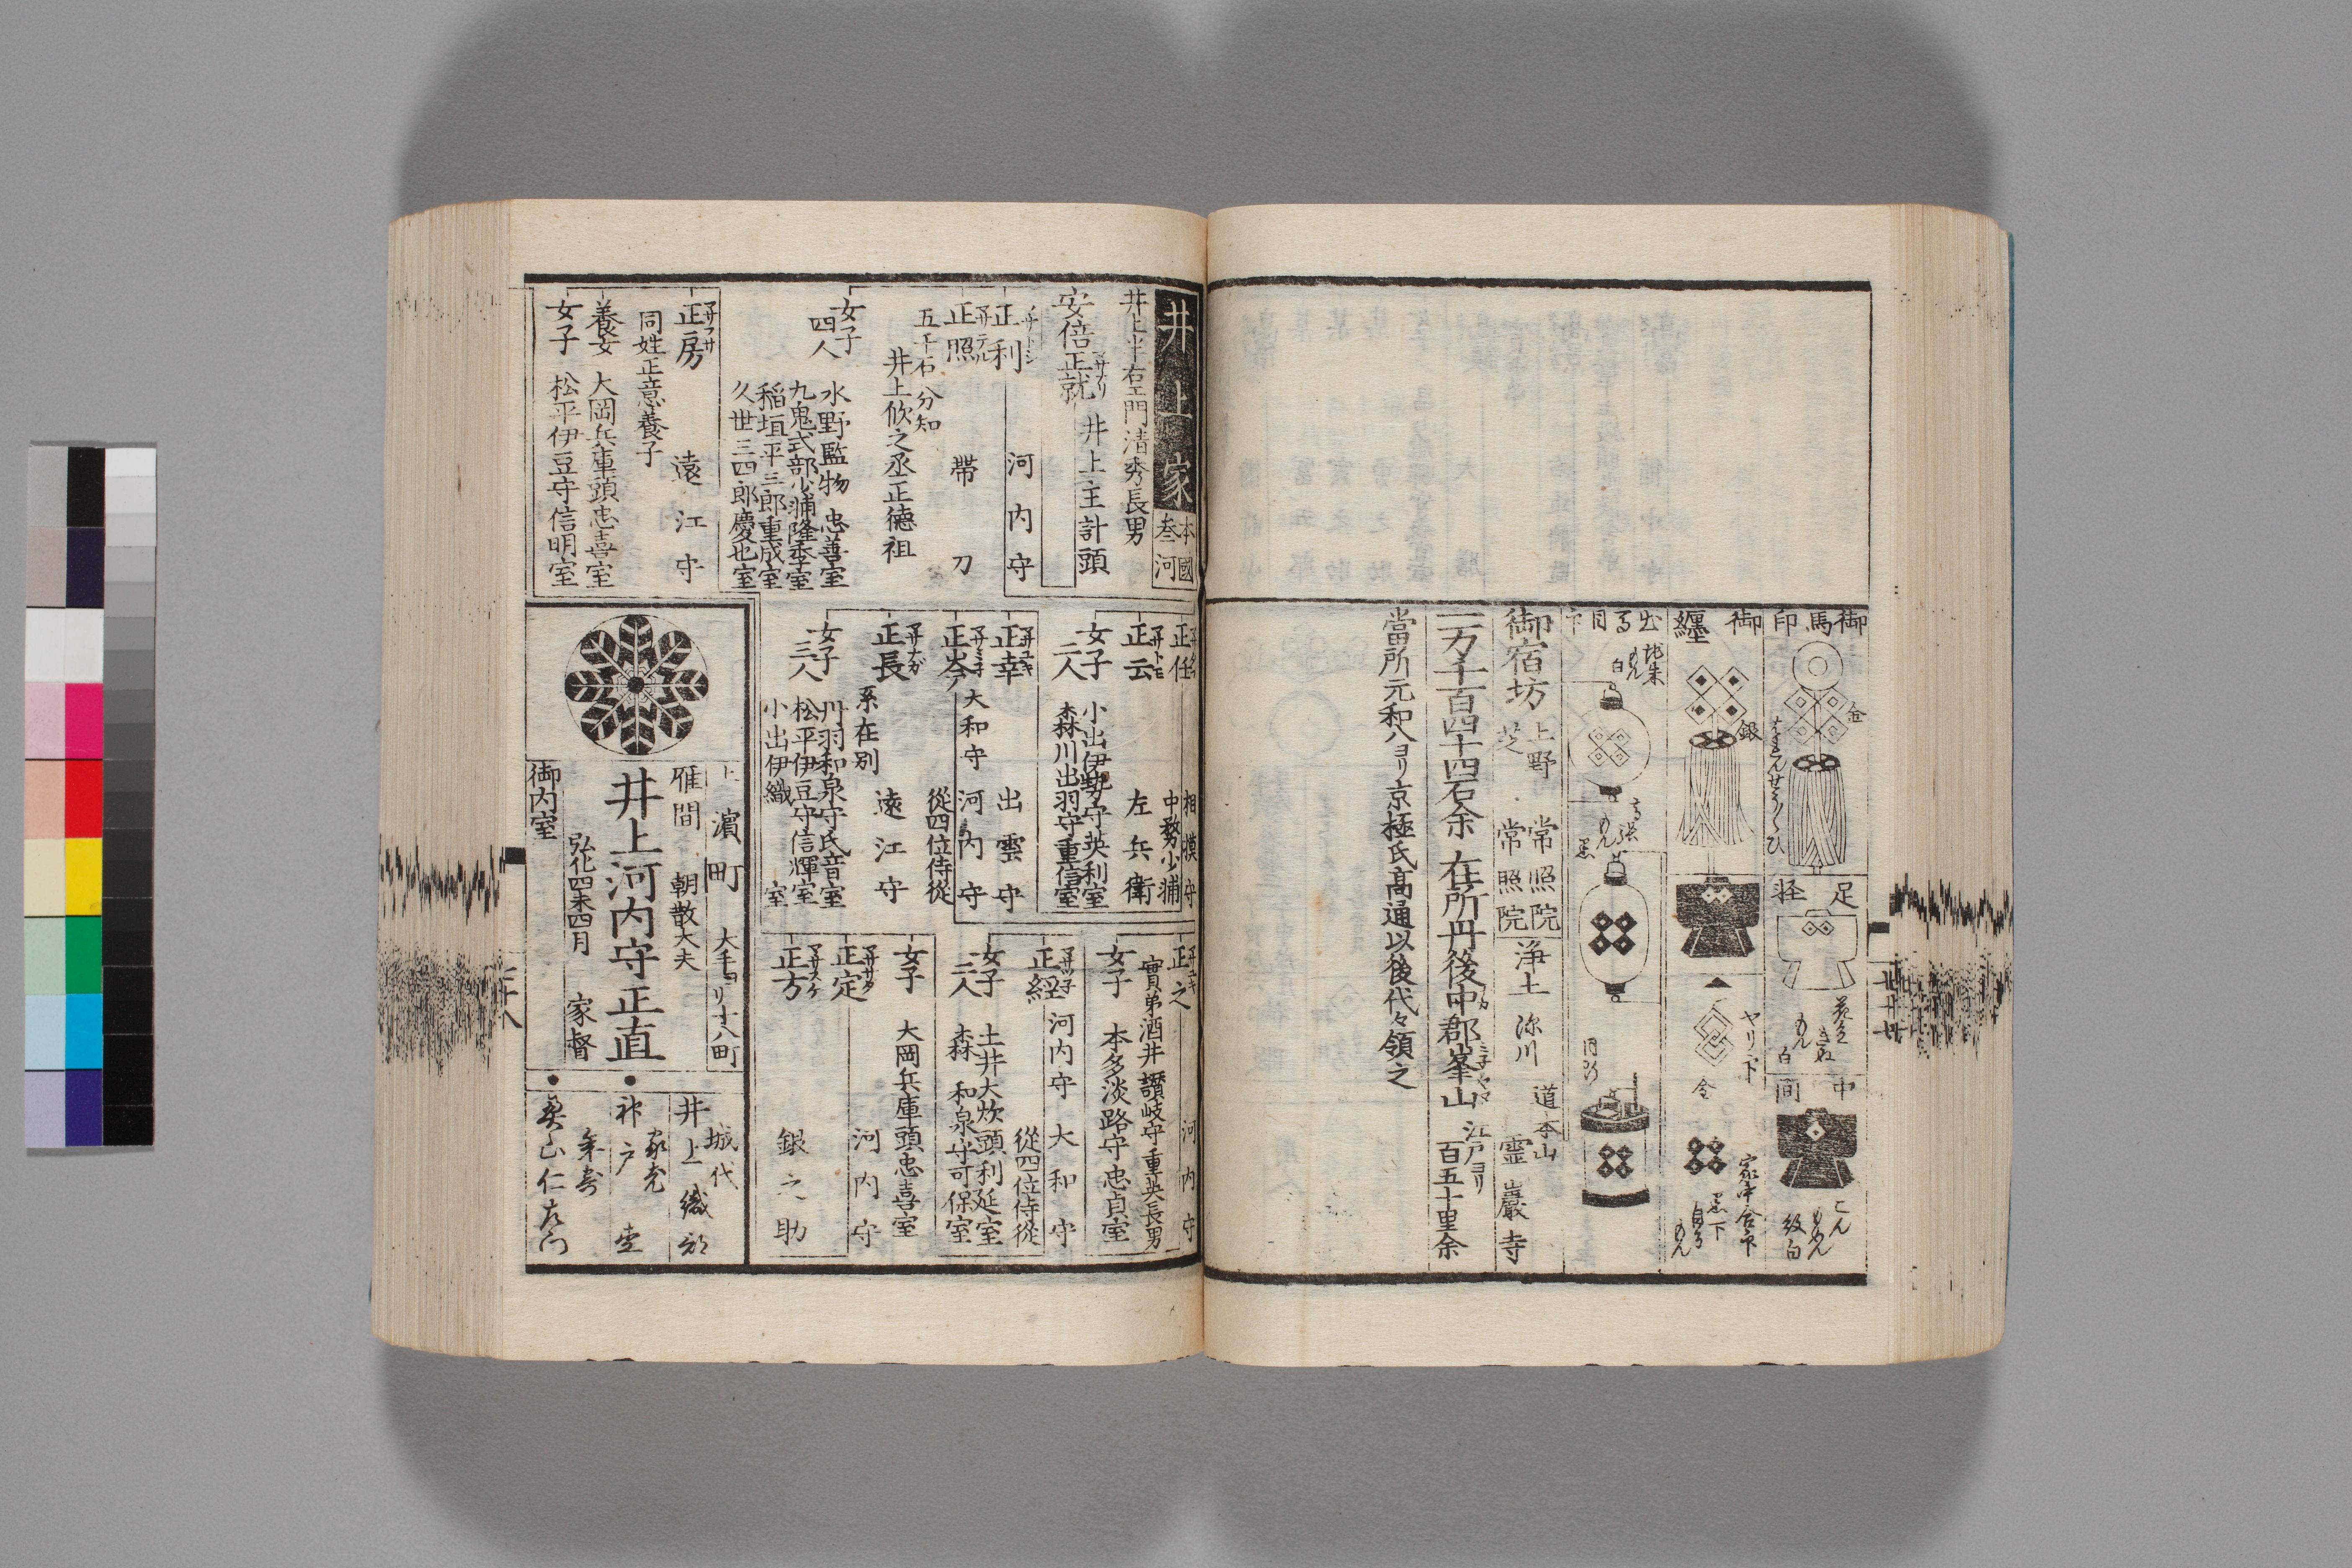 御馬印
金
足軽
白
中間
こん
もめん
紋白
御纏
銀
ヤリ下
金
白
地朱
もん
白
もん
黒
御宿坊
上野 常照院
芝 常照院
浄土 深川
道本山
霊巖寺
一万千百四十四石余
在所丹後中郡峯山
江戸ヨリ
百五十里余
當所元和八ヨリ京極氏高通以後代々領之
井上家
本國
叁河
井上半右エ門清秀長男
安倍正就
井上主計頭
正利
河内守
正照
帯刀
五千石分知
井上
之丞正徳祖
女子
四人
水野監物忠善室
九鬼式部少輔隆季室
稲垣平三郎重成室
久世三四郎慶也室
正房
遠江守
同姓正意養子
養女
大岡兵庫頭忠喜室
女子
松平伊豆守信明室
正任
相模守
中務少輔
正云
左兵衛
女子
二人
小出伊勢守英利室
森川出羽守重信室
正幸
出雲守
正岑
大和守
河内守
從四位侍從
正長
遠江守
系在別
女子
三人
丹羽和泉守氏音室
松平伊豆守信輝室
小出伊織室
正之
河内守
實弟酒井讃岐守重英長男
女子
本多淡路守忠貞室
正経
河内守
大和守
從四位侍從
女子
二人
土井大炊頭利延室
森和泉守可保室
女子
大岡兵庫頭忠喜室
正定
河内守
正方
銀之助
濵町
大手ヨリ十八町
雁間
朝散大夫
井上河内守正直
弘化四未四月
家督
御内室
城代
井上織部
家老
神戸
年寄